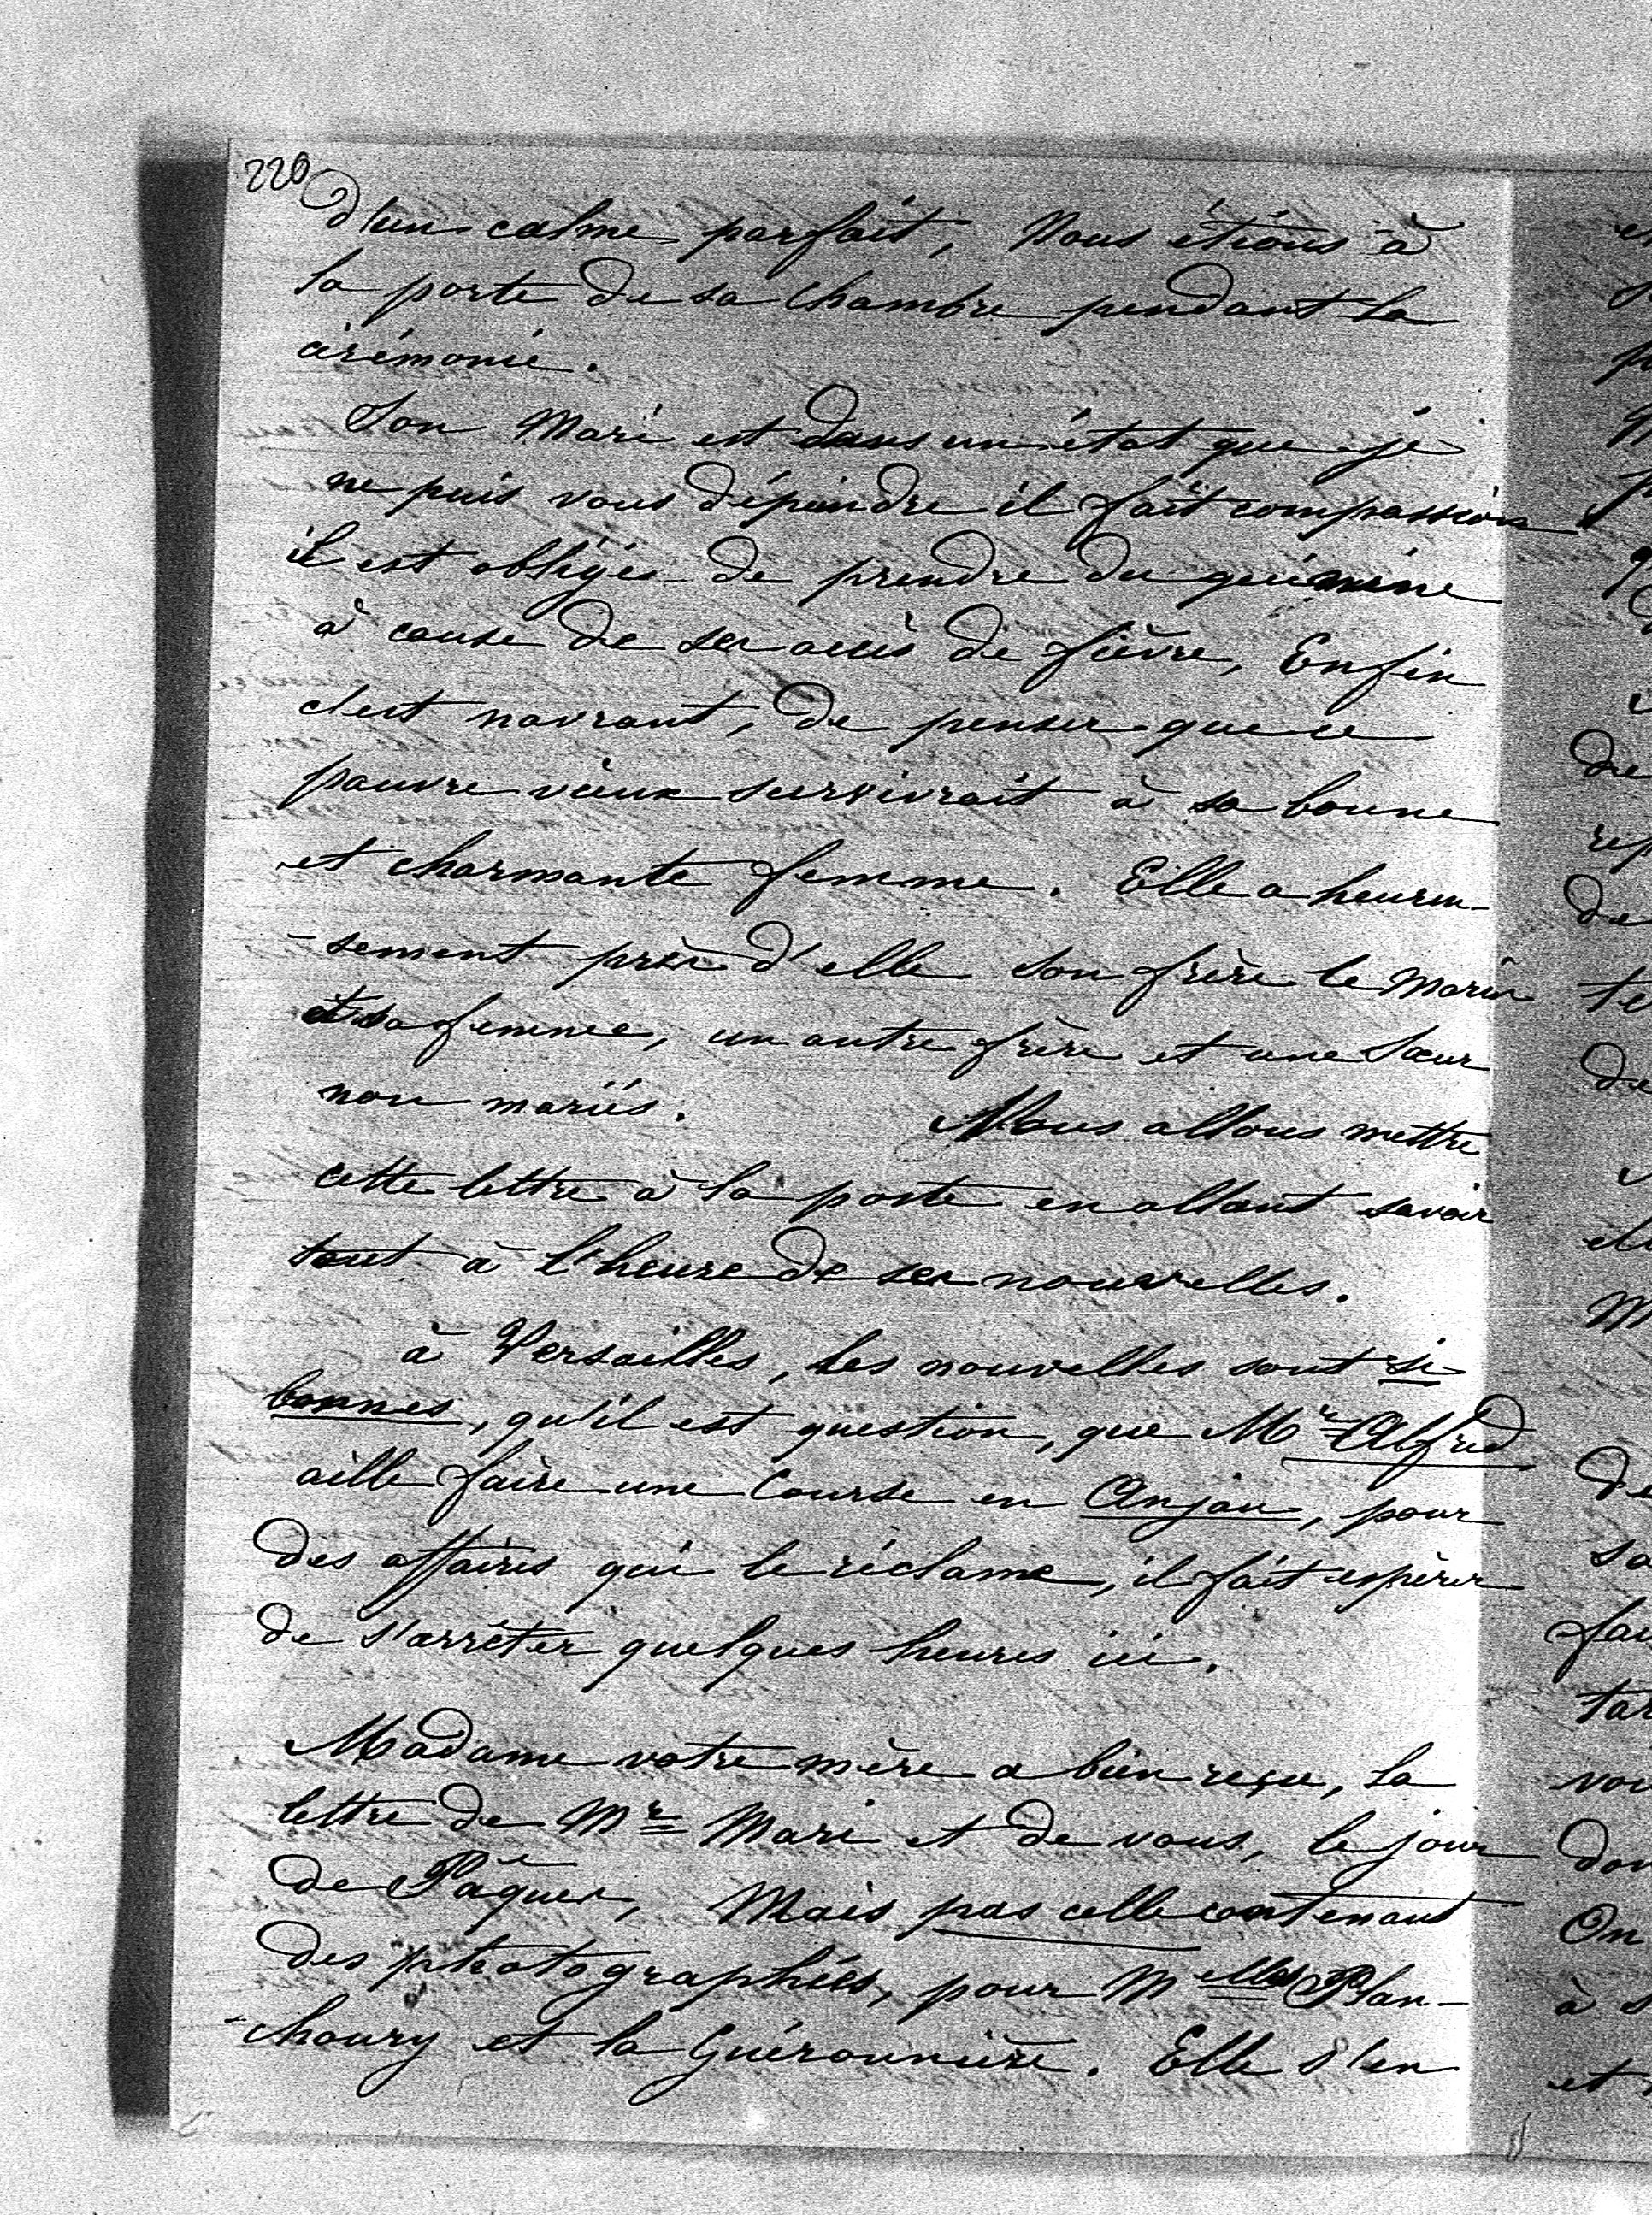 220
d'un calme parfait, Nous étions à
la porte de sa Chambre pendant la
cérémonie.
Son Mari est dans un état que je
ne puis vous dépeindre il fait compassion
il est obligé de prendre du quinine
à cause de ses accès de fièvre, Enfin
c'est navrant, de penser que ce
pauvre vieux survivrait à sa bonne
et charmante femme. Elle a heureu-
-sement près d'elle son frère le Marin
et sa femme, un autre frère et une Sœur
non mariés. Nous allons mettre
cette lettre à la poste en allant savoir
tout à l'heure de ses nouvelles.
à Versailles, les nouvelles sont si
bonnes, qu'il est question, que Mr Alfred
aille faire une Course en Anjou, pour
des affaires qui le réclame, il fait espérer
de s'arrêter quelques heures ici.
Madame votre mère a bien reçu, la
lettre de Mr Mari et de vous, le jour
de Pâques, Mais pas celle contenant
des photographies, pour Melles Plan-
-choury et la Guéronnière. Elle s'en